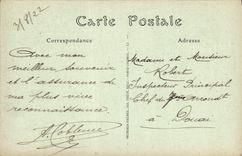 3/8/22
Carte Postale
Correspondance
Adresse
Avec mon
meilleur souvenir
et l'assurance de
ma plus vive
reconnaissance.
Madame et Monsieur
Robert
Inspecteur Principal
Chef du arrondt
à
Douai